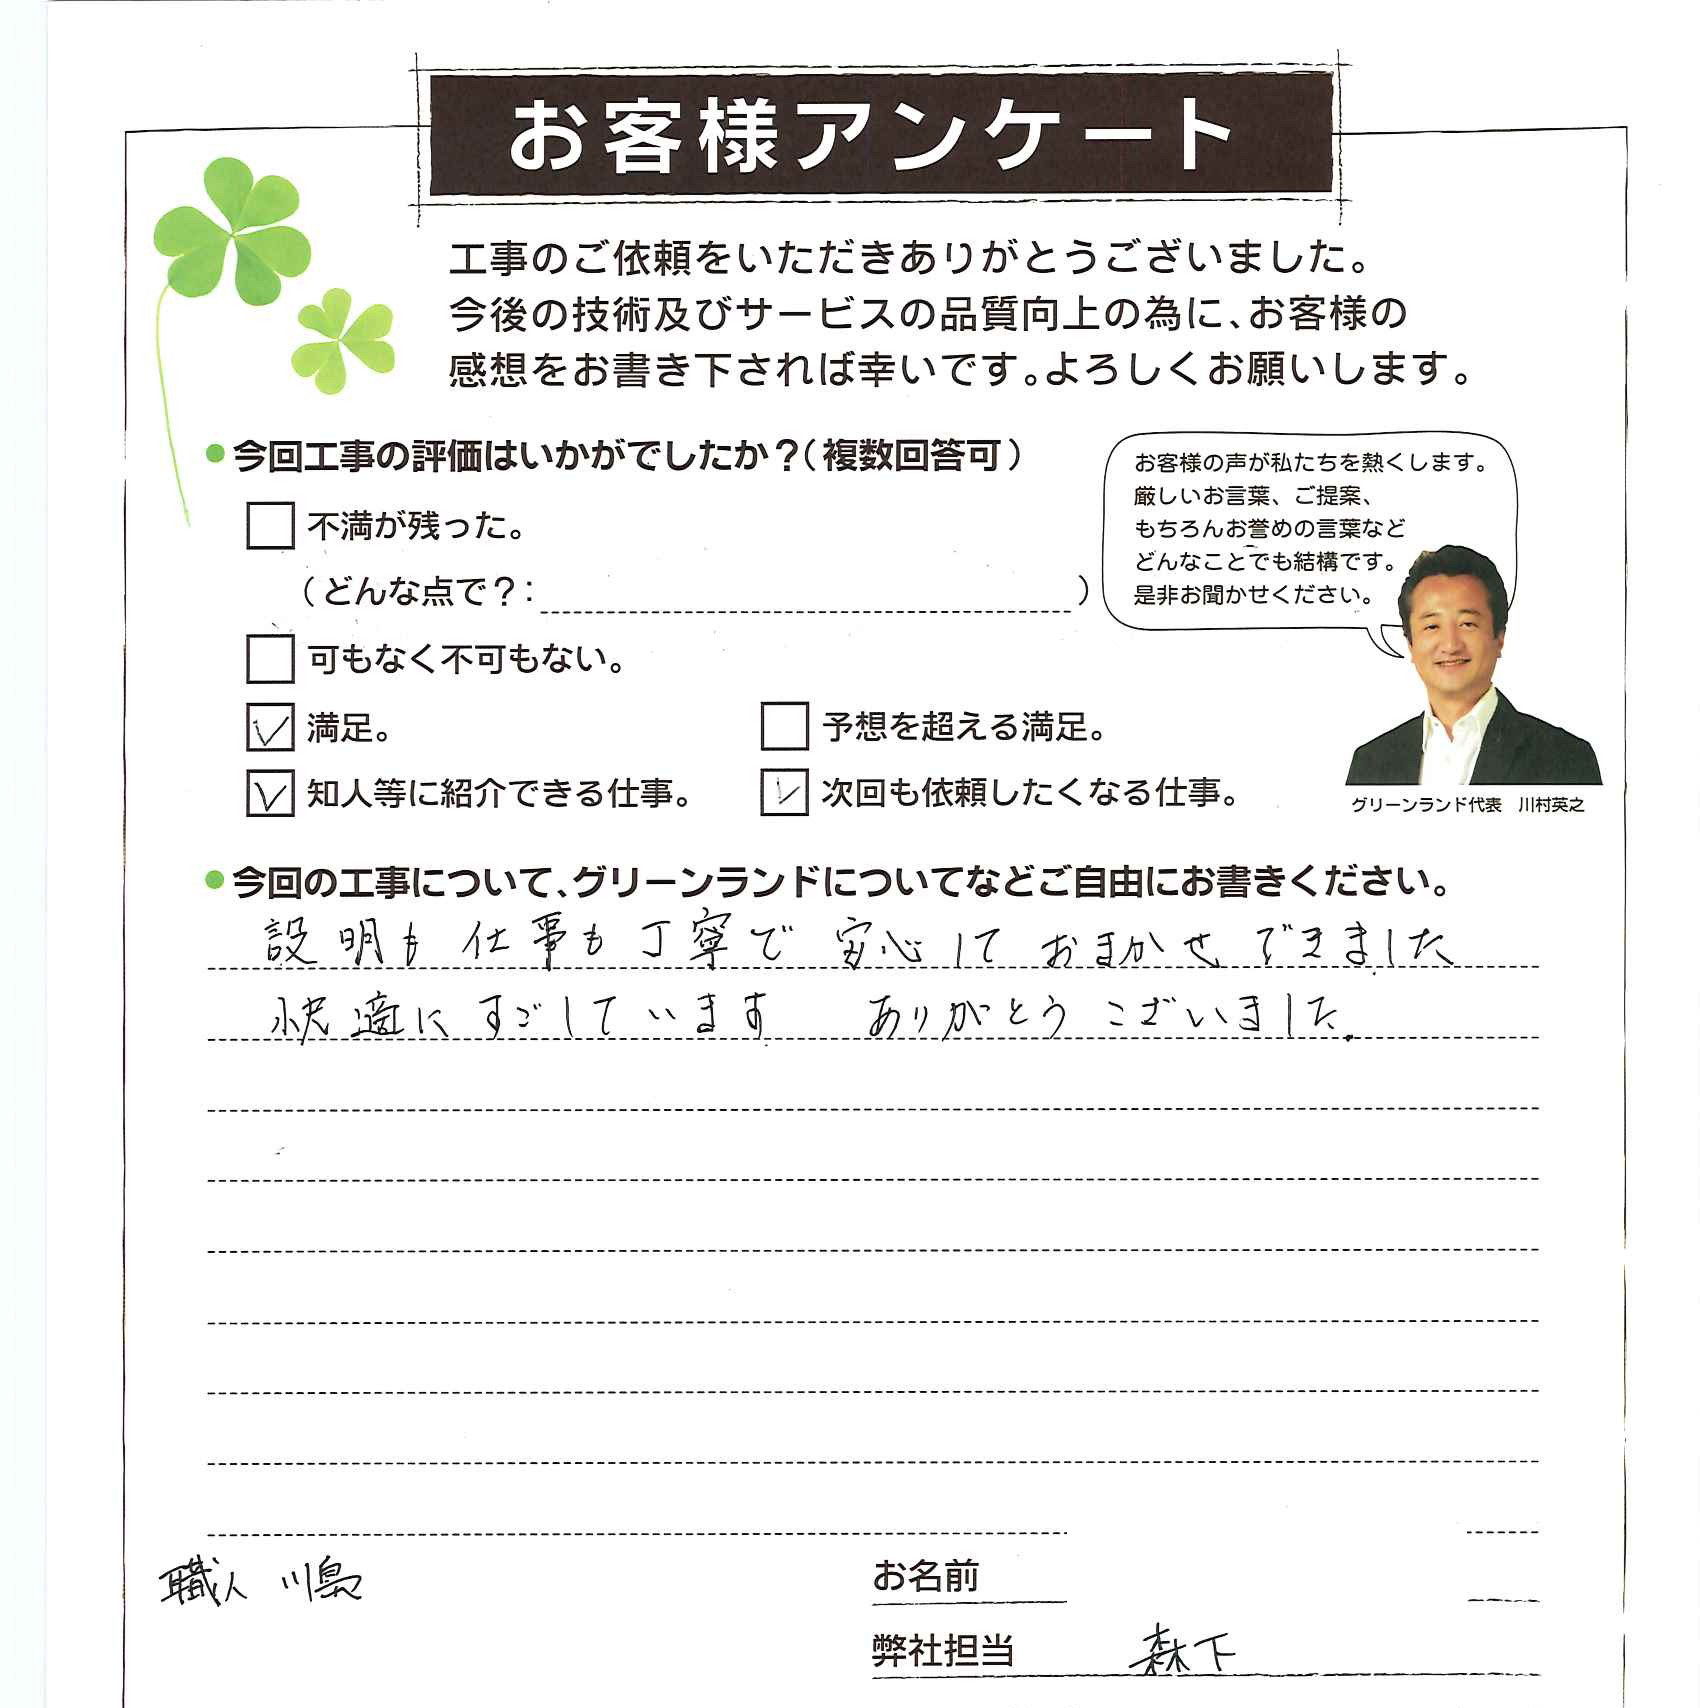 お客様アンケート
工事のご依頼をいただきありがとうございました。
今後の技術及びサービスの品質向上の為に、お客様の
感想をお書き下されれば幸いです。よろしくお願いします。
●今回工事の評価はいかがでしたか？（複数回答可）
不満が残った。
（どんな点で？：　　　）
可もなく不可もない。
満足。
予想を超える満足。
知人等に紹介できる仕事。
次回も依頼したくなる仕事。
お客様の声が私たちを熱くします。
厳しいお言葉、ご提案、
もちろんお誉めの言葉など
どんなことでも結構です。
是非お聞かせください。
グリーンランド代表　川村英之
●今回の工事について、グリーンランドについてなどご自由にお書きください。
設明も仕事も丁寧で 安心して おまかせ できました
快適に すごして います　ありがとう ございました.
職人 川島
お名前
弊社担当 森下